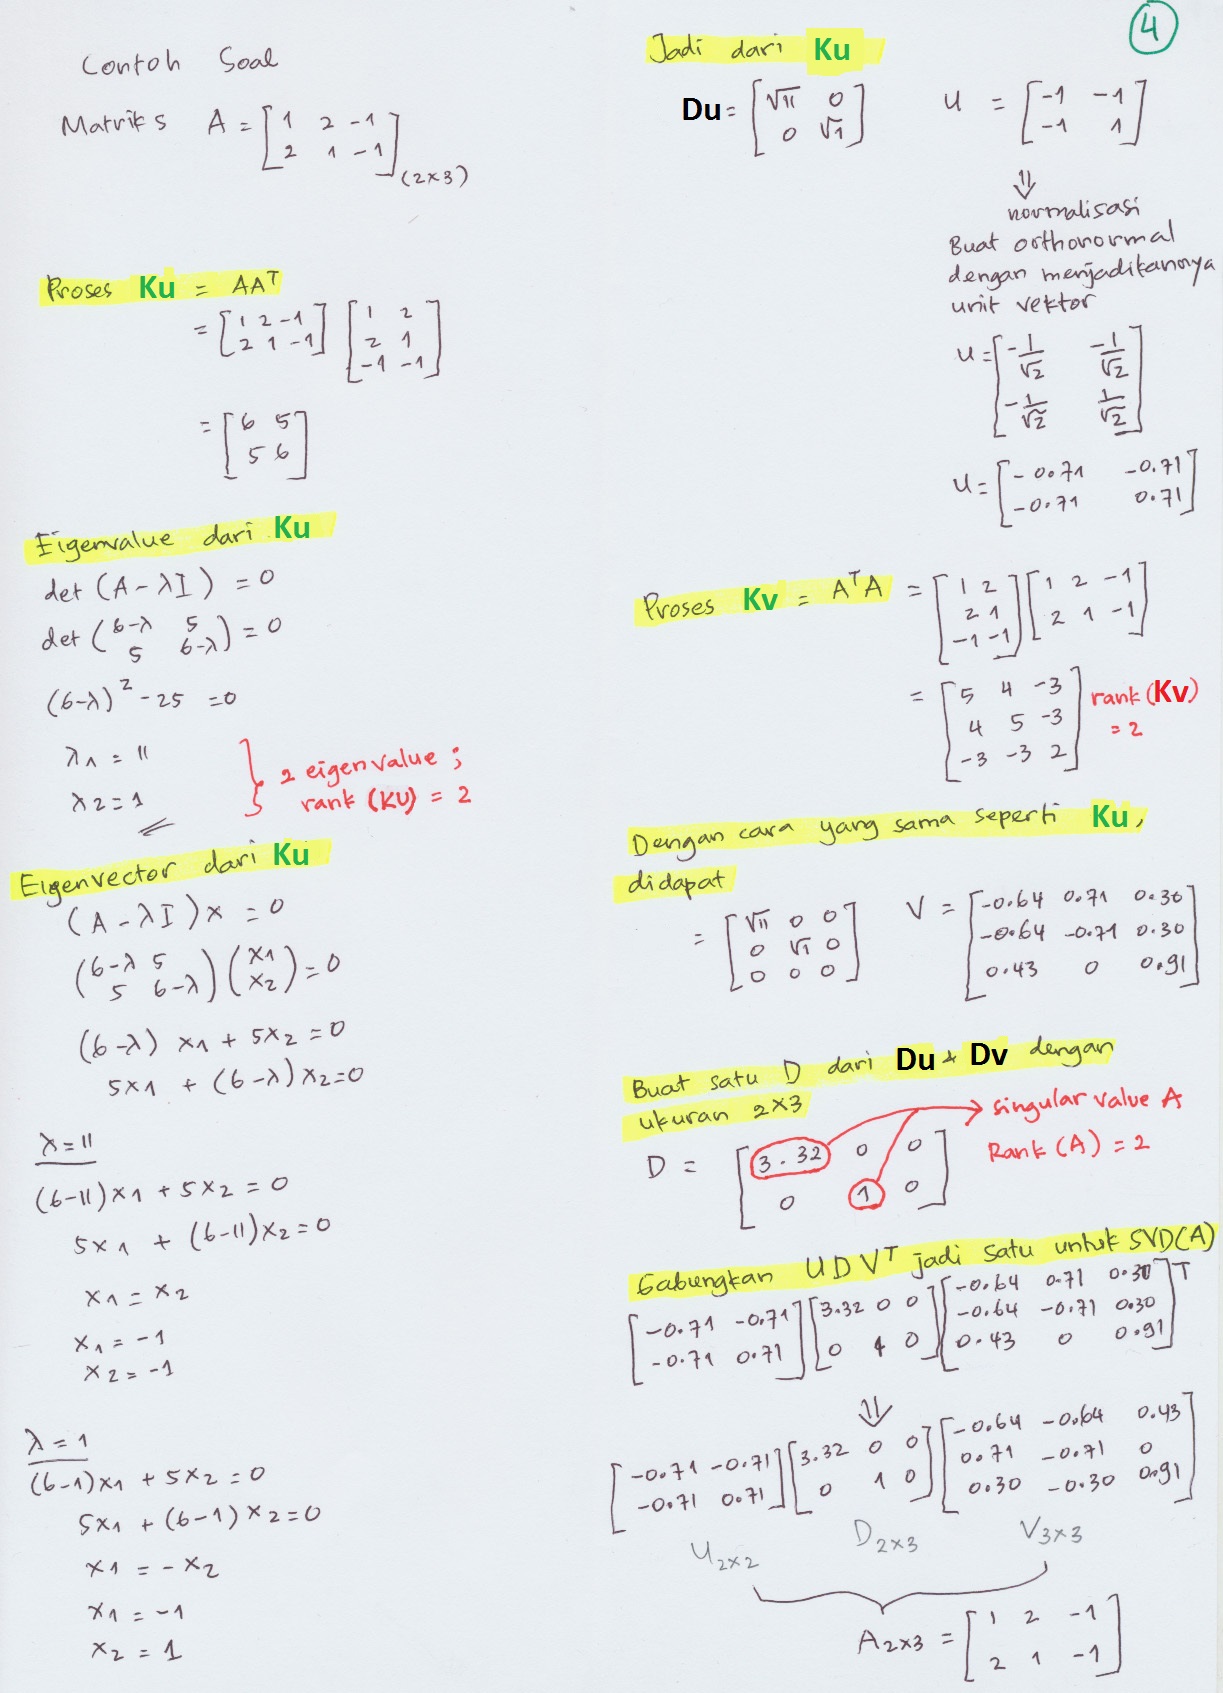 Contoh Soal
Matriks A = [1 2 -1
2 1 -1] (2x3)
Proses Ku = AAᵀ
= [1 2 -1
2 1 -1] [1 2
2 1
-1 -1]
= [6 5
5 6]
Eigenvalue dari Ku
det (A - λI) = 0
det (6-λ 5
5 6-λ) = 0
(6-λ)² - 25 = 0
λ1 = 11
λ2 = 1
} 2 eigenvalue ;
rank (KU) = 2
Eigenvector dari Ku
(A - λI) x = 0
(6-λ 5
5 6-λ) (x1
x2) = 0
(6-λ) x1 + 5x2 = 0
5x1 + (6-λ) x2 = 0
λ = 11
(6-11)x1 + 5x2 = 0
5x1 + (6-11)x2 = 0
x1 = x2
x1 = -1
x2 = -1
λ = 1
(6-1)x1 + 5x2 = 0
5x1 + (6-1)x2 = 0
x1 = -x2
x1 = -1
x2 = 1
4
Jadi dari Ku
Du = [√11 0
0 √1]
U = [-1 -1
-1 1]
⇓
normalisasi
Buat orthonormal
dengan menjadikannya
unit vektor
U = [-1/√2 -1/√2
-1/√2 1/√2]
U = [-0.71 -0.71
-0.71 0.71]
Proses Kv = AᵀA = [1 2
2 1
-1 -1] [1 2 -1
2 1 -1]
= [5 4 -3
4 5 -3
-3 -3 2]
rank (Kv)
= 2
Dengan cara yang sama seperti Ku,
didapat
= [√11 0 0
0 √1 0
0 0 0]
V = [-0.64 0.71 0.30
-0.64 -0.71 0.30
0.43 0 0.91]
Buat satu D dari Du & Dv dengan
ukuran 2x3
D = [3.32 0 0
0 1 0]
→ singular value A
Rank (A) = 2
Gabungkan U D Vᵀ jadi satu untuk SVD(A)
[-0.71 -0.71
-0.71 0.71] [3.32 0 0
0 1 0] [-0.64 0.71 0.30
-0.64 -0.71 0.30
0.43 0 0.91] T
⇓
[-0.71 -0.71
-0.71 0.71] [3.32 0 0
0 1 0] [-0.64 -0.64 0.43
0.71 -0.71 0
0.30 -0.30 0.91]
U2x2 D2x3 V3x3
A2x3 = [1 2 -1
2 1 -1]